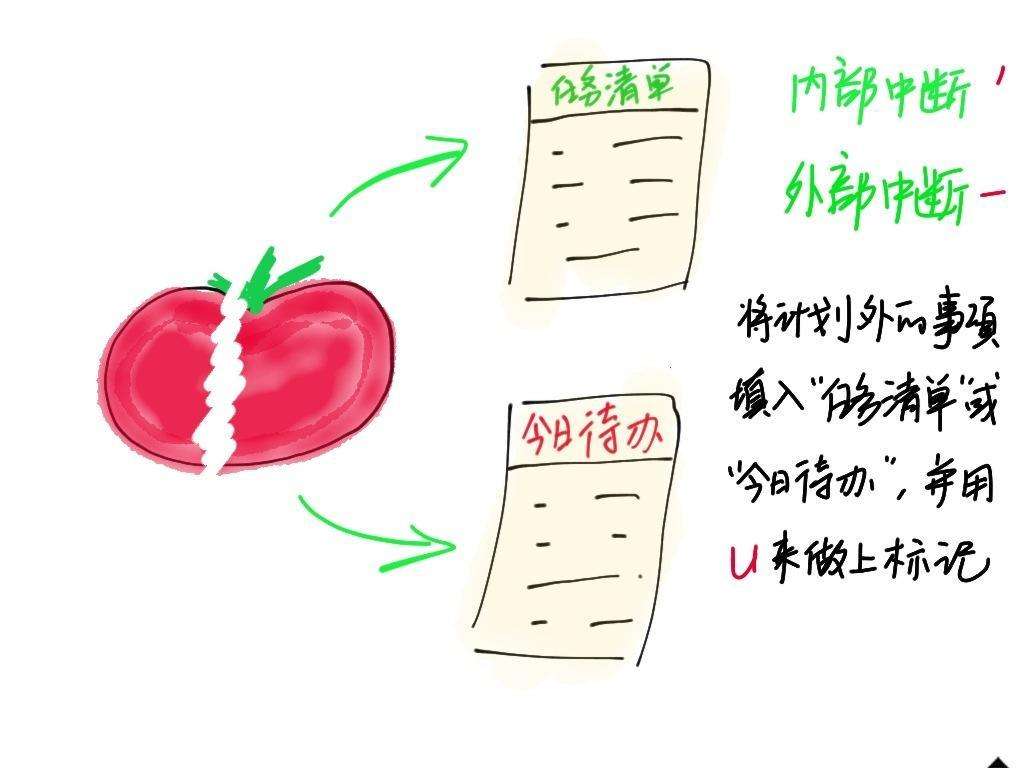 任务清单
今日待办
内部中断 '
外部中断 -
将计划外的事项
填入"任务清单"或
"今日待办"，并用
U来做上标记